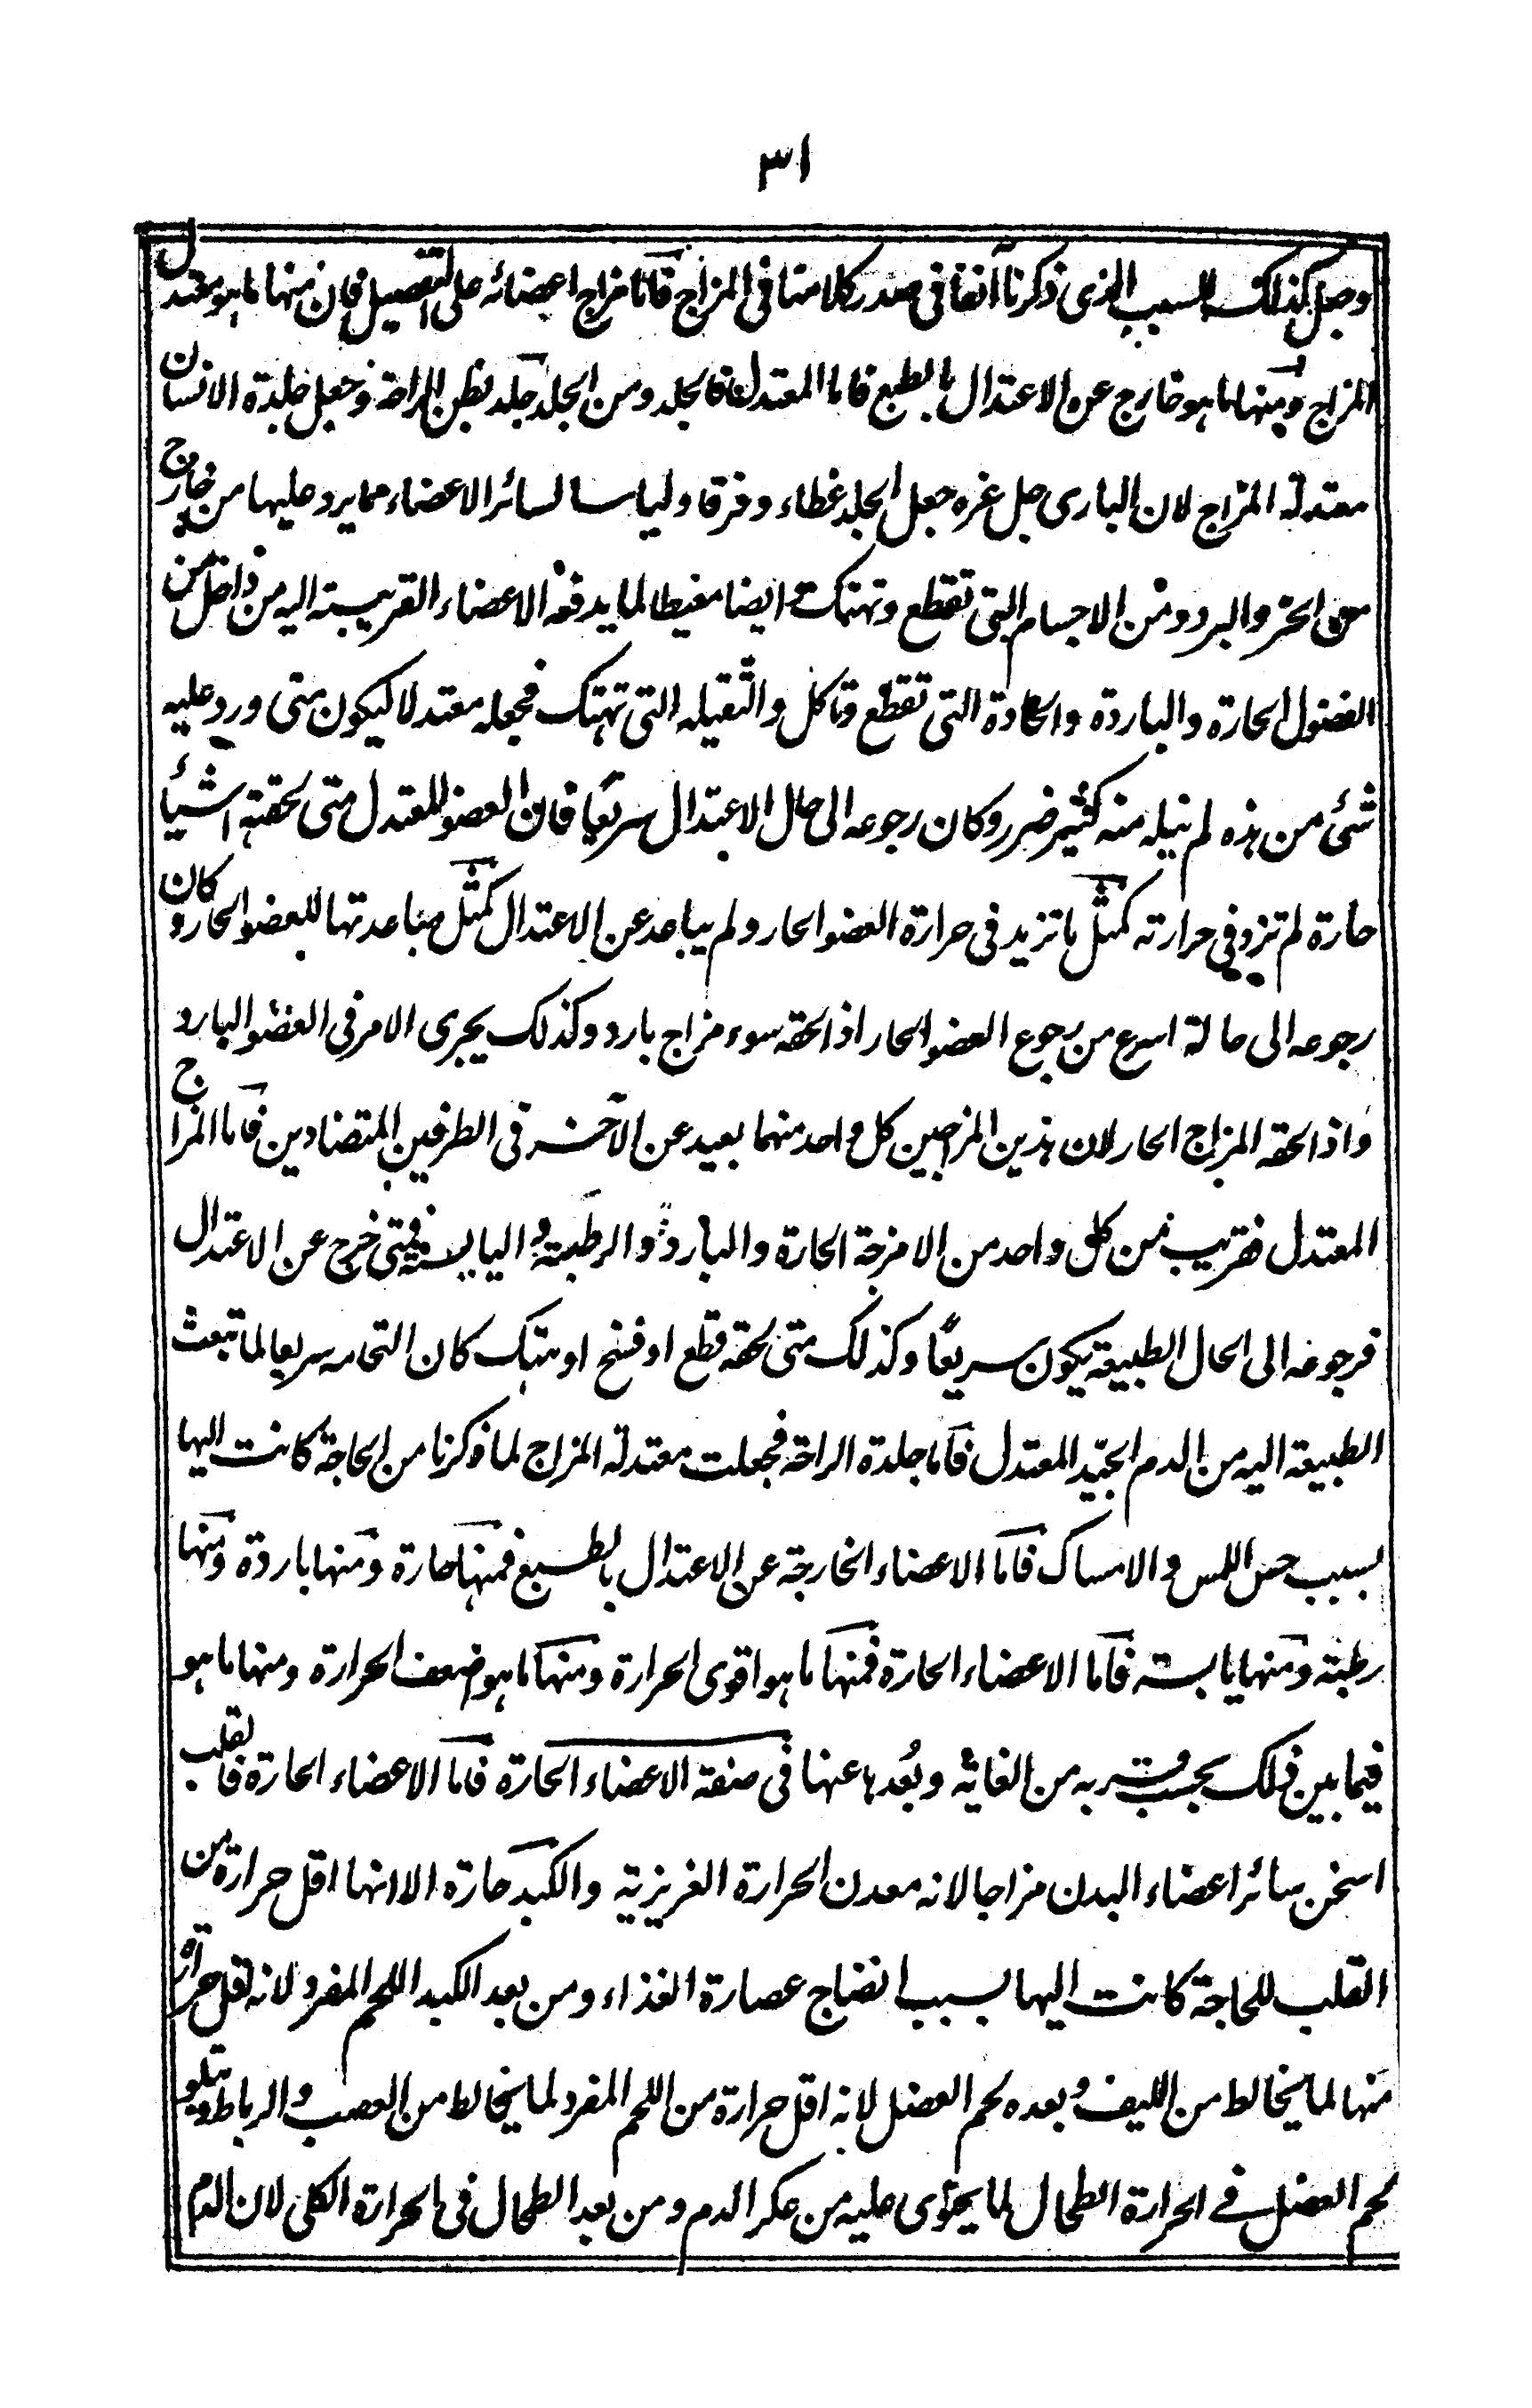 ٣١
وجعل كذلك للسبب الذى ذكرنا آنفا فى صدر كلامنا فى المزاج فاما مزاج اعضائه على التفصيل فان منها ما هو معتدل
المزاج ومنها ما هو خارج عن الاعتدال بالطبع فاما المعتدل فالجلد ومن الجلد جلد بطن الراحة وجعل جلدة الانسان
معتدلة المزاج لان البارى جل عزه جعل الجلد غطاء وفرقا ولباسا لسائر الاعضاء مما يرد عليها من خارج
من الحر والبرد ومن الاجسام التى تقطع وتهتك وايضا مغيطا لما يدفعه الاعضاء القريبة اليه من داخل من
الفضول الحارة والباردة والحادة التى تقطع وتاكل والثقيله التى تهتك فجعله معتدلا ليكون متى ورد عليه
شئ من هذه لم ينله منه كثير ضرر وكان رجوعه الى حال الاعتدال سريعا فان العضو المعتدل متى لحقته اشياء
حارة لم تزد فى حرارته كمثل ما تزيد فى حرارة العضو الحار ولم يباعد عن الاعتدال كمثل مباعدتها للعضو الحار وكان
رجوعه الى حالة اسرع من رجوع العضو الحار اذا لحقه سوء مزاج بارد وكذلك يجرى الامر فى العضو البارد
واذا لحقه المزاج الحار لان هذين المزاجين كل واحد منهما بعيد عن الآخر فى الطرفين المتضادين فاما المزاج
المعتدل فقريب من كل واحد من الامزجة الحارة والباردة والرطبة واليابسة فمتى خرج عن الاعتدال
فرجوعه الى الحال الطبيعة يكون سريعا وكذلك متى لحقه قطع او فسخ او هتك كان التحامه سريعا لما تبعث
الطبيعة اليه من الدم الجيد المعتدل فاما جلدة الراحة فجعلت معتدلة المزاج لما ذكرنا من الحاجة كانت اليها
بسبب حس اللمس والامساك فاما الاعضاء الخارجة عن الاعتدال بالطبع فمنها حارة ومنها باردة ومنها
رطبة ومنها يابسة فاما الاعضاء الحارة فمنها ما هو اقوى الحرارة ومنها ما هو ضعف الحرارة ومنها ما هو
فيما بين ذلك بحسب قربه من الغاية وبُعدها عنها فى صفة الاعضاء الحارة فاما الاعضاء الحارة فالقلب
اسخن سائر اعضاء البدن مزاجا لانه معدن الحرارة الغريزية والكبد حارة الا انها اقل حرارة من
القلب للحاجة كانت اليها بسبب انضاج عصارة الغذاء ومن بعد الكبد اللحم المفرد لانه اقل حرارة
منها لما يخالط من الليف وبعده لحم العضل لانه اقل حرارة من اللحم المفرد لما يخالط من العصب والرباط ويتلو
لحم العضل فى الحرارة الطحال لما يحتوى عليه من عكر الدم ومن بعد الطحال فى الحرارة الكلى لان الدم